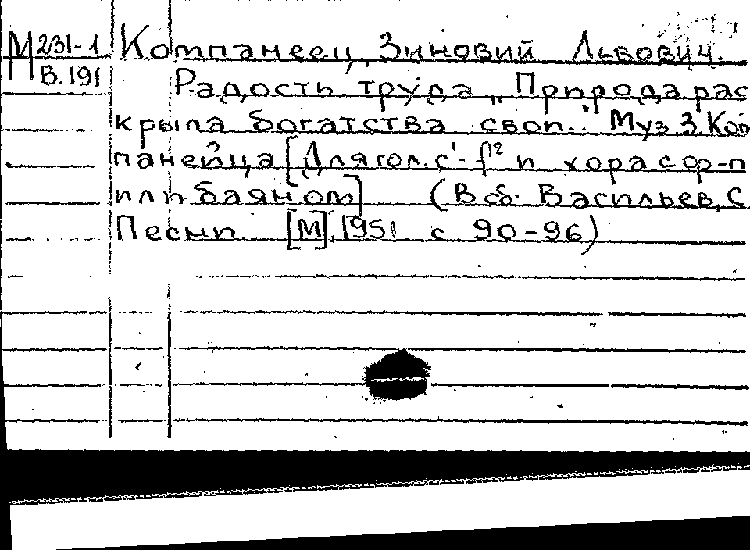 М 231-1 Компанеец, Зиновий Львович.
В.191 Радость труда „Природа рас
крыла богатства свои.." Муз З. Ком
панейца [Для гол. с¹-f² и хора с ф-п
или баяном] (В сб. Васильев, С
Песни [М], 1951 с 90-96)